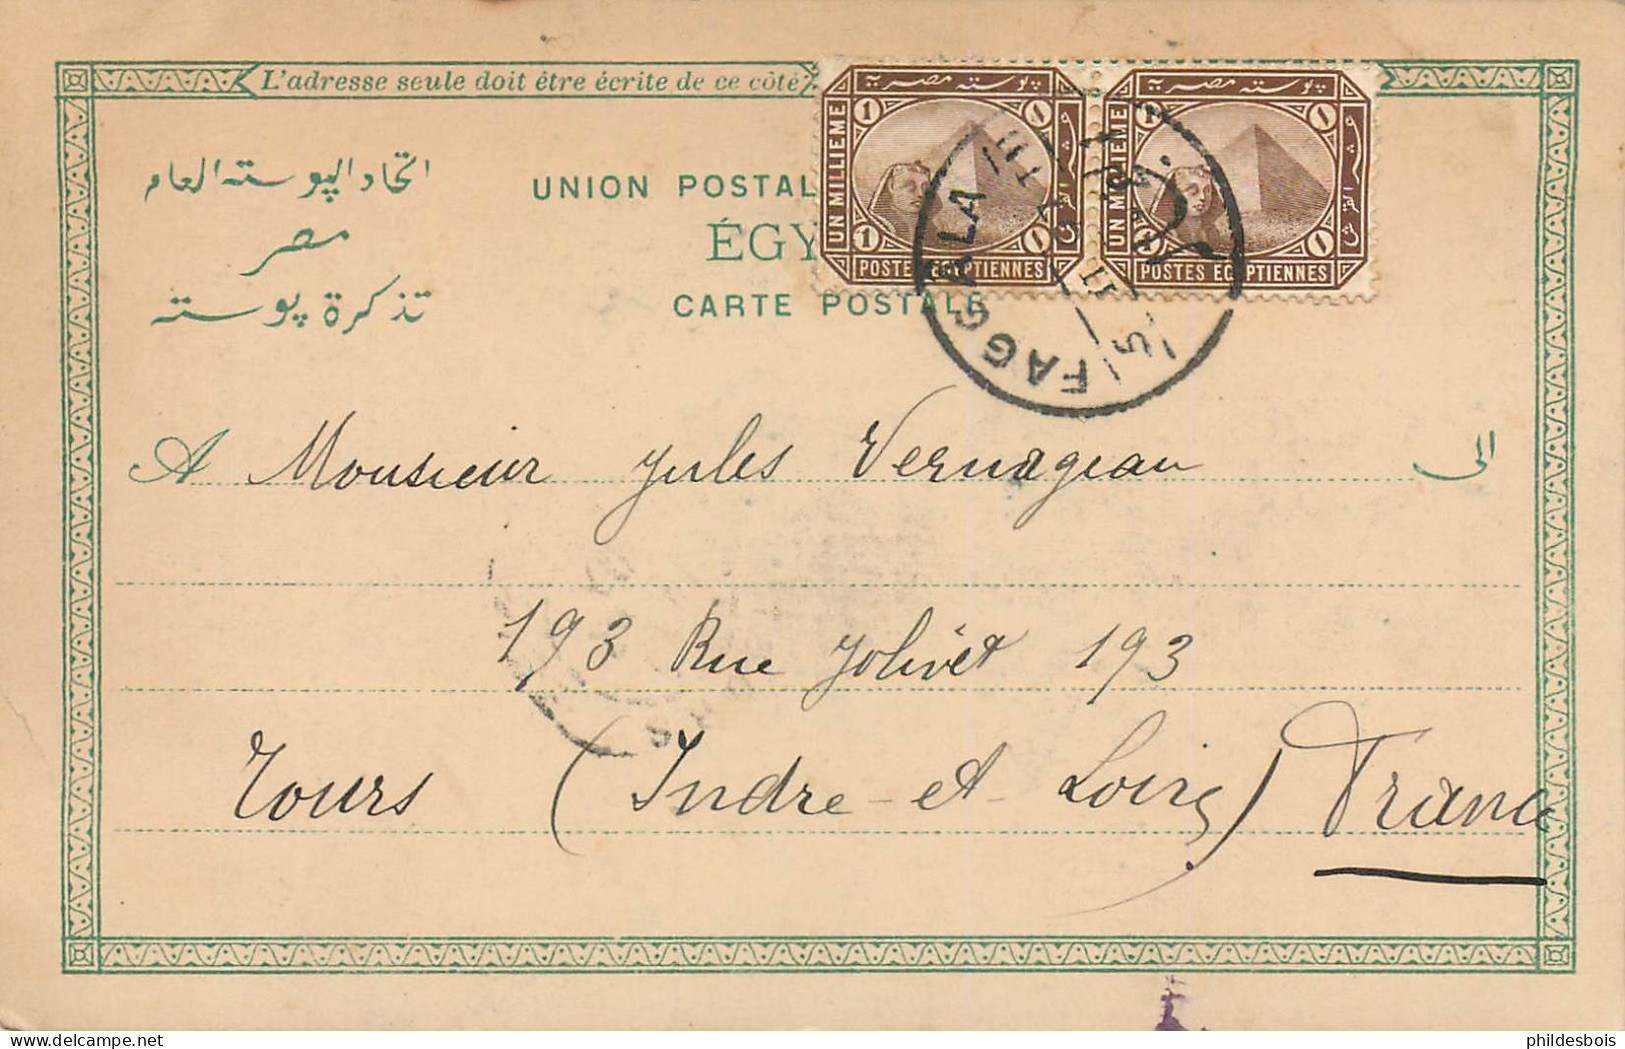 L'adresse seule doit être écrite de ce côté
اتحاد الپوسته العام
مصر
تذكرة پوسته
UNION POSTAL
ÉGY
CARTE POSTALE
پوسته مصريه
1 ١
UN MILLIEME
عشر القرش
1 ١
POSTES EGYPTIENNES
پوسته مصريه
1 ١
UN MILLIEME
عشر القرش
1 ١
POSTES EGYPTIENNES
FAGGALA
A Monsieur Jules Vernageau الى
193 Rue Jolivet 193
Tours (Indre-et-Loire) France
phildesbois